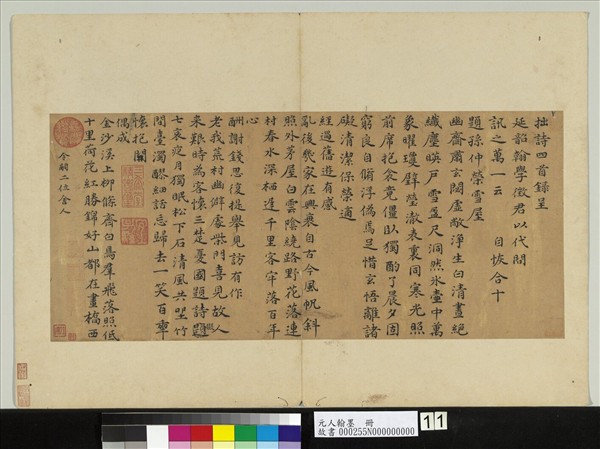 拙詩四首錄呈
延韶翰學徵君以代問
訊之萬一云　自恢合十
題孫仲榮雪屋
幽齋肅玄闊虛敞渾生白清晝絕
纖塵暎戶雪盈尺洞然氷壺中萬
象曜瓊璧瑩澈表裏同寒光照
前席抱衾竟僵臥獨酌了晨夕固
窮良自脩浮偽焉足惜玄悟離諸
礙清潔保榮適
經過舊遊有感
亂後幾家在興衰自古今風帆斜
照外茅屋白雲陰繞路野花落連
村春水深栖遲千里客牢落百年
心
酬謝錢思復提舉見訪有作
老我荒村幽僻處柴門喜見故人
來艱時為客懷三楚憂國題詩題
七哀夜月獨眠松下石清風共坐竹
間臺濁醪細話忘歸去一笑百年
懷抱開
偶成
金沙溪上柳條齊白鳥羣飛落照低
十里荷花紅勝錦好山都在畫橋西
今嗣二位舍人
元人翰墨　冊
故書 000255N000000000
11